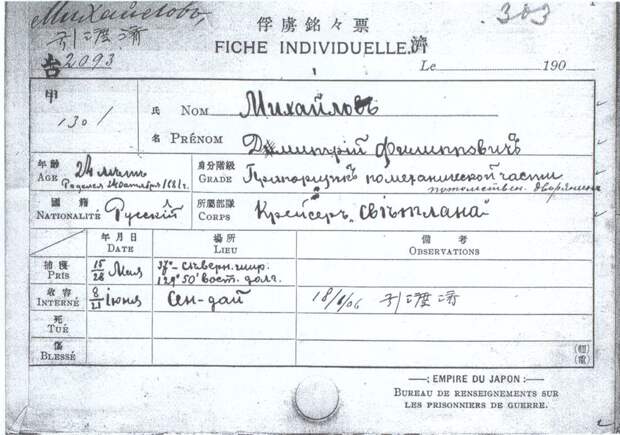 Михайловъ,
俘虜銘々票
303
引渡済
FICHE INDIVIDUELLE.
濟
告 2093
Le 190
甲
1301
氏 NOM Михайловъ
名 PRÉNOM Димитрій Филипповичъ
年齡 AGE 24 лѣтъ
Родился 26 октября 1881 г.
身分階級 GRADE Прапорщикъ по механической части
потомствен. дворянинъ
國籍 NATIONALITÉ Русскій 人
所屬部隊 CORPS Крейсеръ „Свѣтлана"
年月日 DATE
場所 LIEU
備考 OBSERVATIONS
捕獲 PRIS 15/28 Мая
37°- сѣверн. шир.
129° 50' вост. долг.
收容 INTERNÉ 8/21 іюня
Сен-дай
18/1/06 引渡済
死 TUÉ
傷 BLESSÉ
(輕)
(重)
—: EMPIRE DU JAPON:—
BUREAU DE RENSEIGNEMENTS SUR
LES PRISONNIERS DE GUERRE.